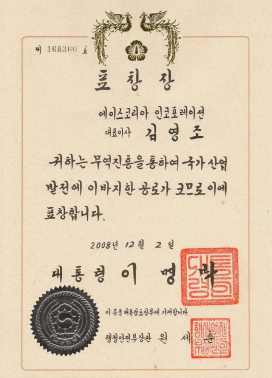 제 168360 호
표창장
에이스코리아 인코포레이션
대표이사 김영조
귀하는 무역진흥을 통하여 국가 산업
발전에 이바지한 공로가 크므로 이에
표창합니다.
2008년 12월 2일
대통령 이명박
이 증을 대통령표창부에 기재합니다.
행정안전부장관 원세훈